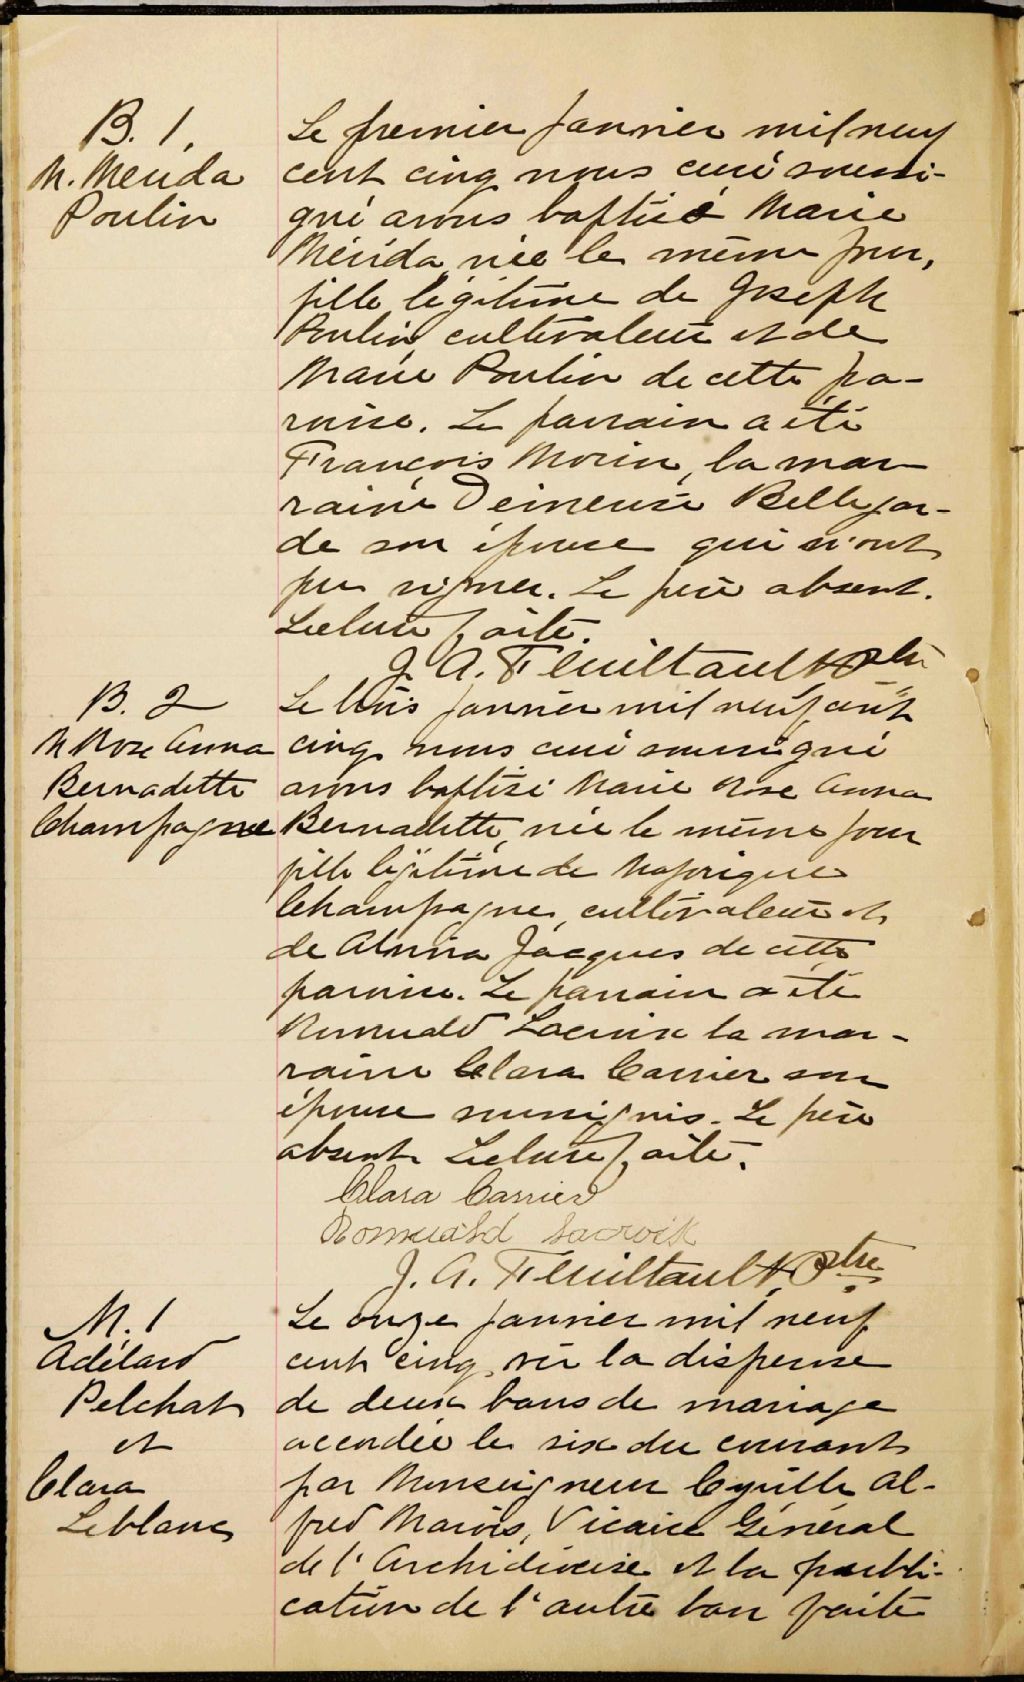 B. 1.
M. Mérida
Poulin
Le premier Janvier mil neuf
cent cinq nous curé soussi-
gné avons baptisé Marie
Mérida, née le même jour,
fille légitime de Joseph
Poulin, cultivateur et de
Marie Poulin de cette pa-
roisse. Le parrain a été
François Morin, la mar-
raine Demeuse Bellegar-
de son épouse qui n'ont
pu signer. Le père absent.
Lecture faite.
J. A. Feuiltault Ptre
B. 2
M Rose Anna
Bernadette
Champagne
Le trois janvier mil neuf cent
cinq nous curé soussigné
avons baptisé Marie Rose Anna
Bernadette, née le même jour
fille légitime de Majorique
Champagne, cultivateur et
de Alvina Jacques de cette
paroisse. Le parrain a été
Romuald Lacroix la mar-
raine Clara Carrier son
épouse soussignés. Le père
absent. Lecture faite.
Clara Carrier
Romuald Lacroix
J. A. Feuiltault, Ptre
M. 1
Adélard
Pelchat
et
Clara
Leblanc
Le onze janvier mil neuf
cent cinq, vu la dispense
de deux bans de mariage
accordée le six du courant
par Monseigneur Cyrille Al-
fred Marois, Vicaire Général
de l'Archidiocèse et la publi-
cation de l'autre ban faite